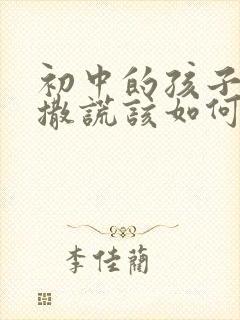 初中的孩子
撒謊該如何
李佳蘭